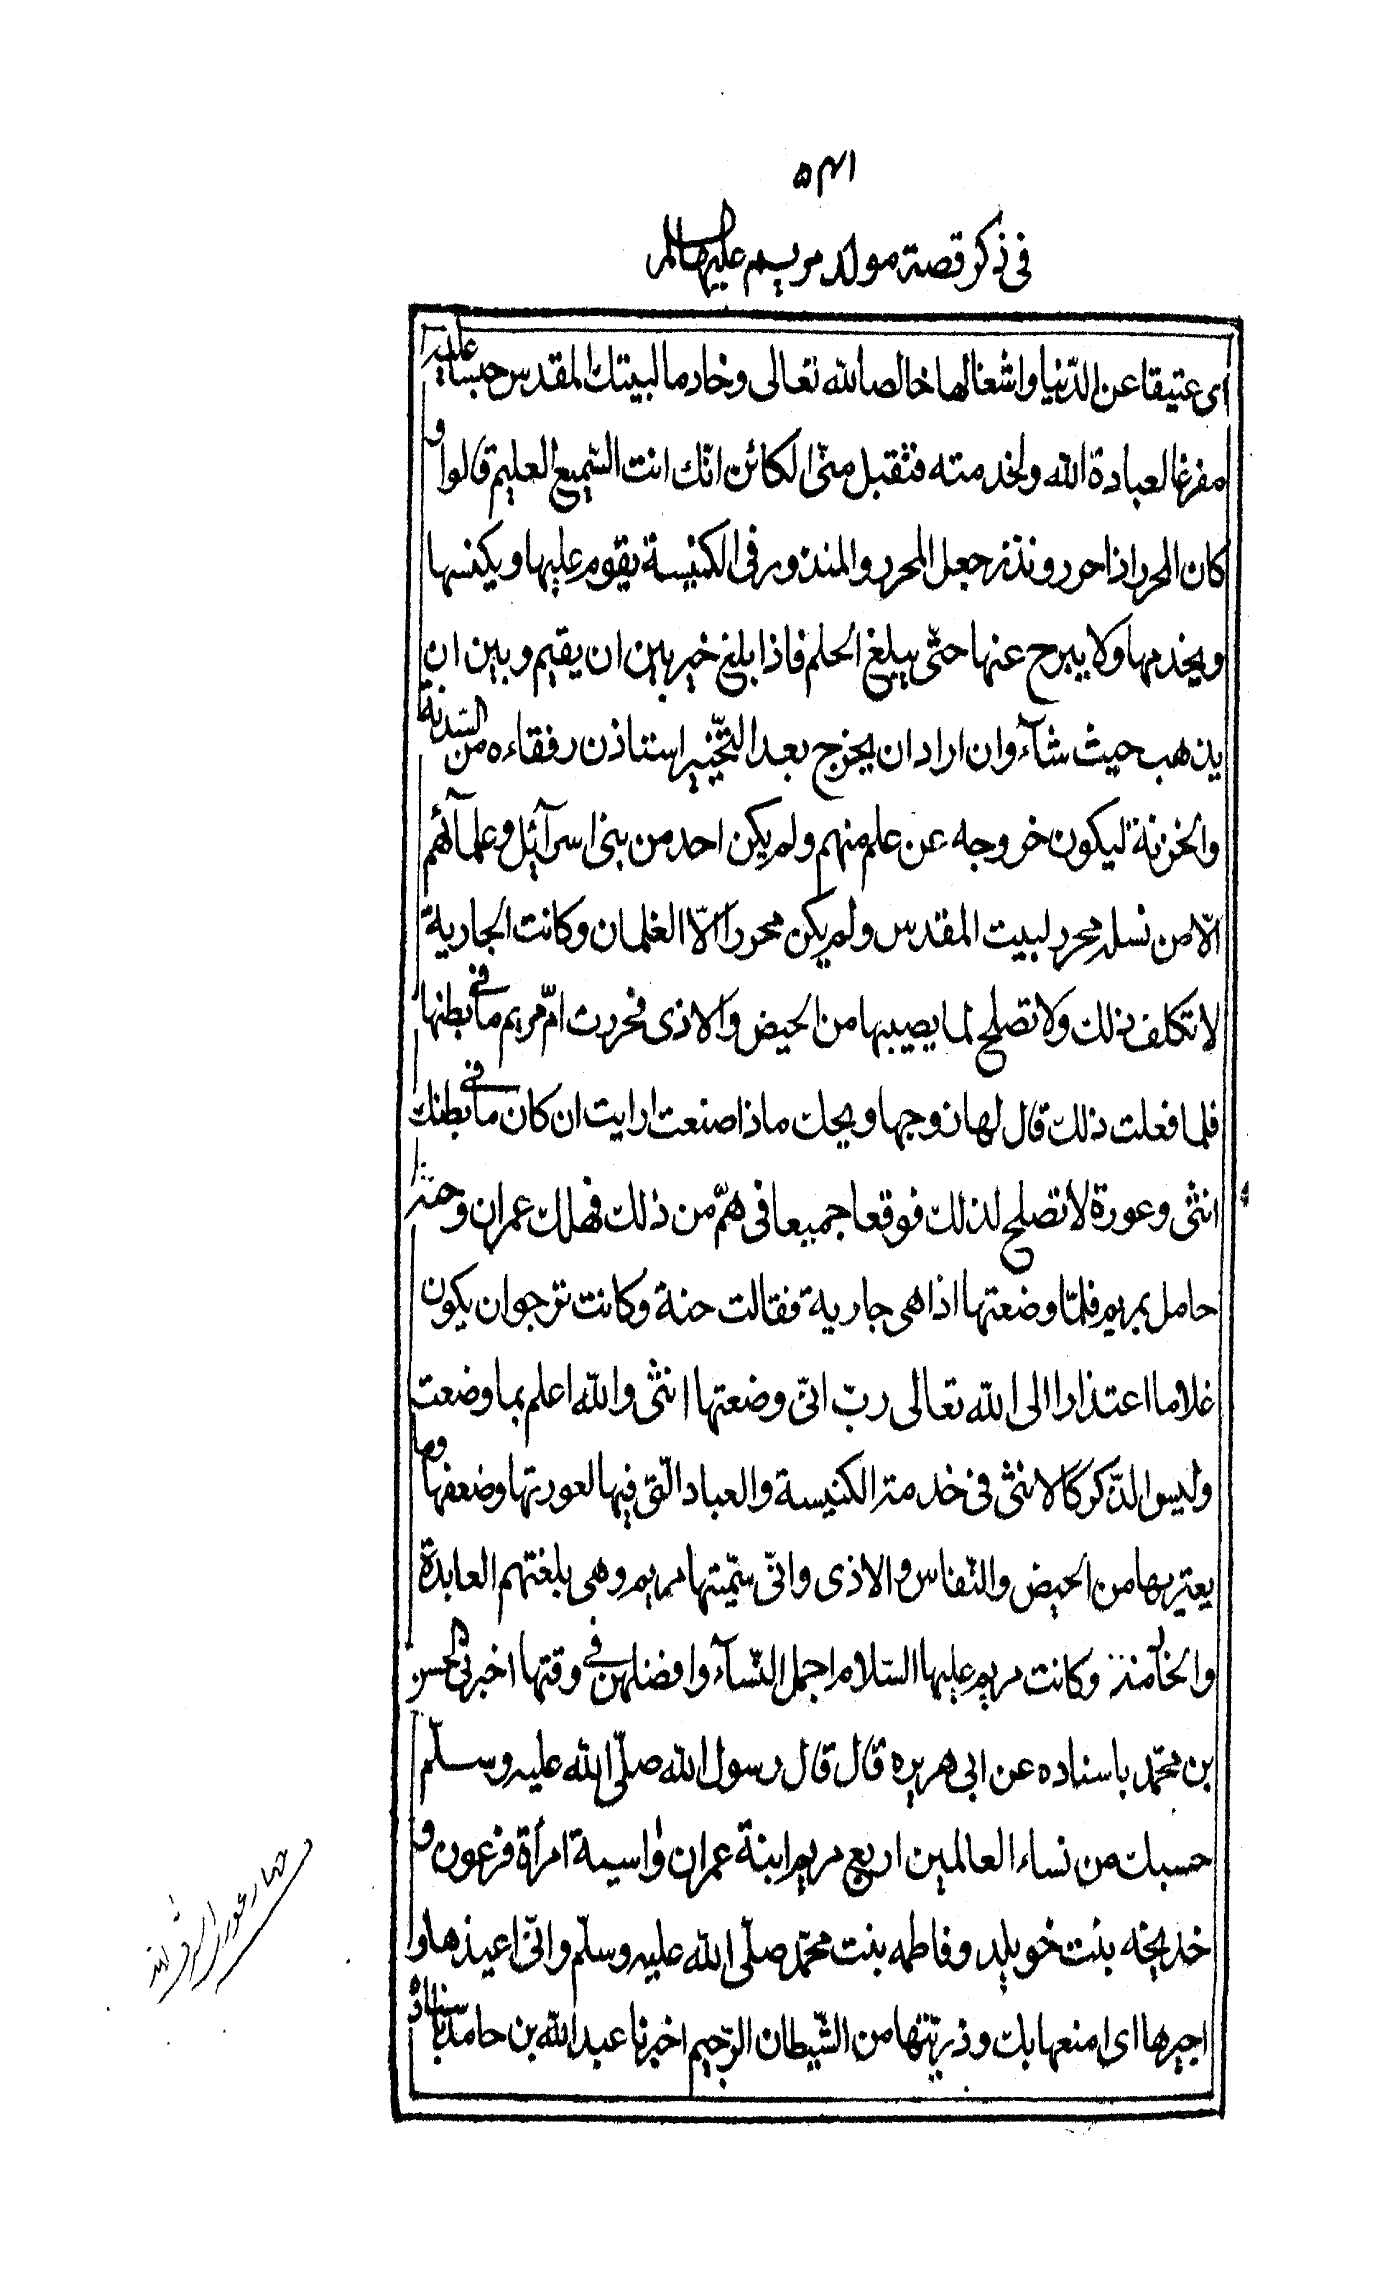 ٥٣١
فى ذكر قصة مولد مريم عليها السلام
اى عتيقا عن الدّنيا واشغالها خالصا لله تعالى وخادما لبيتك المقدس حبسا عليه
مفرغا لعبادة الله ولخدمته فتقبل منّى الكائن انّك انت السّميع العليم قالوا و
كان المحرر اذا حور ونذر جعل المحرر والمنذور فى الكنيسة يقوم عليها ويكنسها
ويخدمها ولا يبرح عنها حتّى يبلغ الحلم فاذا بلغ خير بين ان يقيم وبين ان
يذهب حيث شآء وان اراد ان يخرج بعد التّخيير استاذن رفقاءه من السّدنة
والخزنة ليكون خروجه عن علم منهم ولم يكن احد من بنى اسرآئيل وعلمآئهم
الّا من نسله محرر لبيت المقدس ولم يكن محررا الّا الغلمان وكانت الجارية
لا تكلف ذلك ولا تصلح لما يصيبها من الحيض والاذى فحررت امّ مريم ما فى بطنها
فلما فعلت ذلك قال لها زوجها ويحك ماذا صنعت ارايت ان كان ما فى بطنك
انثى وعورة لا تصلح لذلك فوقعا جميعا فى همّ من ذلك فهلك عمران وحنة
حامل بمريم فلمّا وضعتها اذا هى جارية فقالت حنة وكانت ترجو ان يكون
غلاما اعتذارا الى الله تعالى ربّ انّى وضعتها انثى والله اعلم بما وضعت
وليس الذّكر كالانثى فى خدمة الكنيسة والعباد الّتى فيها لعورتها وضعفها وما
يعتريها من الحيض والنّفاس والاذى وانّى سمّيتها مريم وهى بلغتهم العابدة
والخآمنة وكانت مريم عليها السّلام اجمل النّسآء وافضلهن فى وقتها اخبرنى الحسن
بن محمّد باسناده عن ابى هريره قال قال رسول الله صلّى الله عليه وسلّم
حسبك من نساء العالمين اربع مريم ابنة عمران واسية امرأة فرعون و
خديجه بنت خويلد وفاطمه بنت محمّد صلّى الله عليه وسلّم وانّى اعيذها وا
اجيرها اى امنعها بك وذريّتها من الشّيطان الرّجيم اخبرنا عبد الله بن حامد باسناده